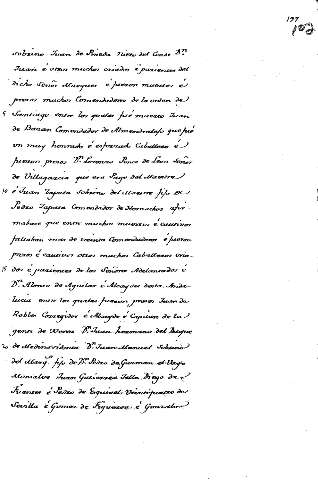 197
sobrino Juan de Pineda Nieto del Conde Dⁿ
Juan é otros muchos criados é parientes del
dicho Señor Marques é fueron muertos é
presos muchos Comendadores de la orden de
5 Santiago entre los quales fué muerto Juan
de Bazan Comendador de Almendralejo que fué
un muy honrado é esforzado Caballero é
fueron presos Dⁿ Lorenzo Ponce de Leon Señor
de Villagarcia que era Trece del Maestre
10 é Juan Zapata Sobrino del Maestre fijo de
Pedro Zapata Comendador de Hornachos afir-
mabase que entre muchos muertos é cautivos
fallaban mas de treinta Comendadores é fueron
presos é cautivos otros muchos Caballeros cria-
15 dos é parientes de los Señores Adelantados é
Dⁿ Alonso de Aguilar é Alcaydes desta Anda-
lucia entre los quales fueron presos Juan de
Robles Corregidor é Alcayde é Capitan de la
gente de Xerez Dⁿ Juan hermano del Duque
20 de Medinasidonia Dⁿ Juan Manuel Sobrino
del Marqˢ fijo de Dⁿ Pedro de Guzman el Viejo
Juan Gutierrez Tello Diego de
Fuentes é Pedro de Esquivel Veintiquatro de
Sevilla é Gomez de Figueroa é Gonzalo